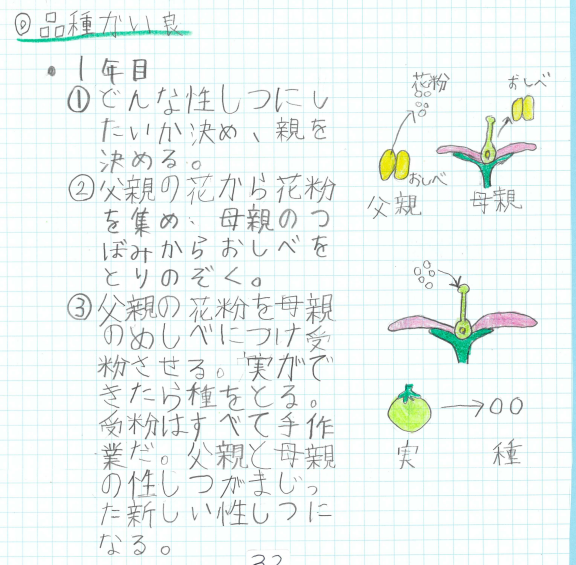 ◎品種かい良
・1年目
①どんな性しつにし
たいか決め、親を
決める。
②父親の花から花粉
を集め、母親のつ
ばみからおしべを
とりのぞく。
③父親の花粉を母親
のめしべにつけ受
粉させる。実がで
きたら種をとる。
受粉はすべて手作
業だ。父親と母親
の性しつがまじっ
た新しい性しつに
なる。
花粉
おしべ
おしべ
父親
母親
実
種
32